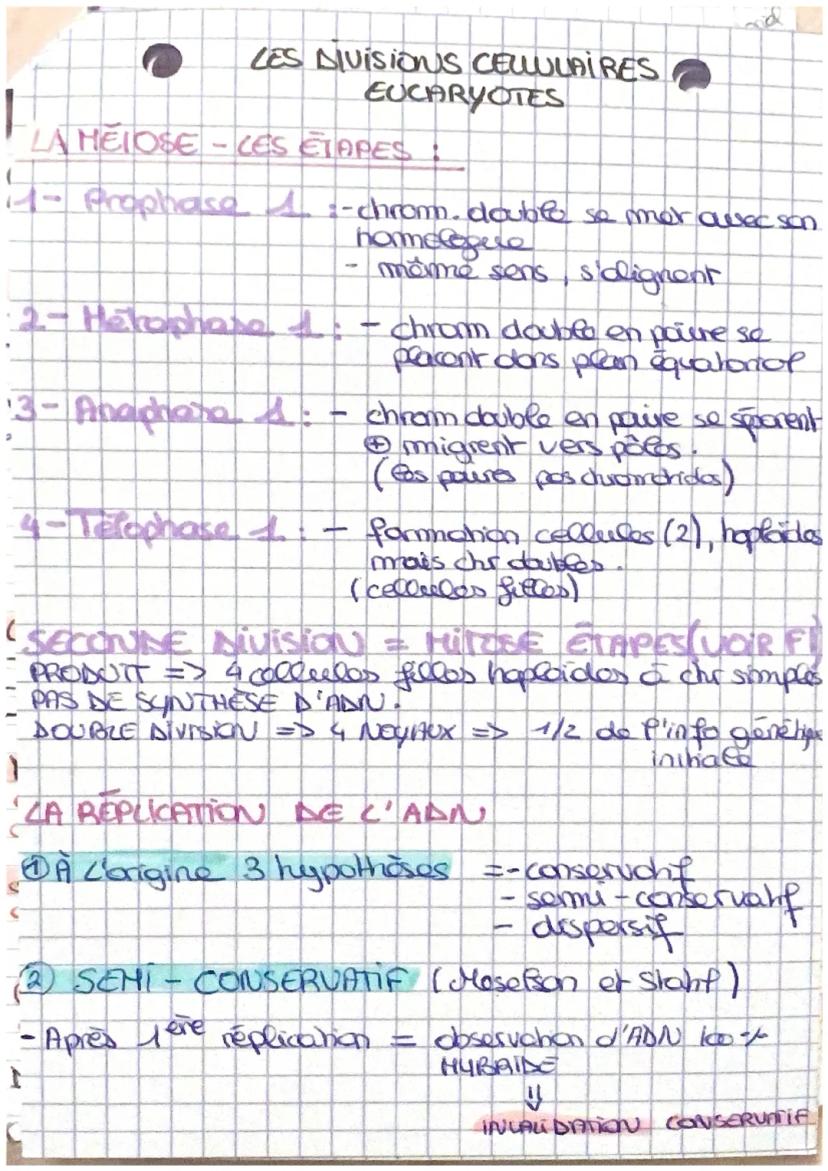 LES DIVISIONS CELLULAIRES
EUCARYOTES
LA MÉIOSE - LES ÉTAPES :
1- Prophase 1 : - chrom. double se met avec son
homologue
- même sens, s'alignent
2- Métaphase 1 : - chrom double en paire se
placent dans plan équatorial
3- Anaphase 1 : - chrom double en paire se séparent
⊕ migrent vers pôles.
(les paires pas chromatides)
4- Télophase 1 : - formation cellules (2), haploïdes
mais chr doubles.
(cellules filles)
SECONDE DIVISION = MITOSE ÉTAPES (VOIR F1
PRODUIT => 4 cellules filles haploïdes à chr simples
PAS DE SYNTHÈSE D'ADN.
DOUBLE DIVISION => 4 NOYAUX => 1/2 de l'info génétique
initiale
LA RÉPLICATION DE L'ADN
① À L'origine 3 hypothèses = - conservatif
- semi-conservatif
- dispersif
② SEMI-CONSERVATIF (Meselson et Stahl)
- Après 1ère réplication = observation d'ADN 100 %
HYBRIDE
⇓
INVALIDATION CONSERVATIF